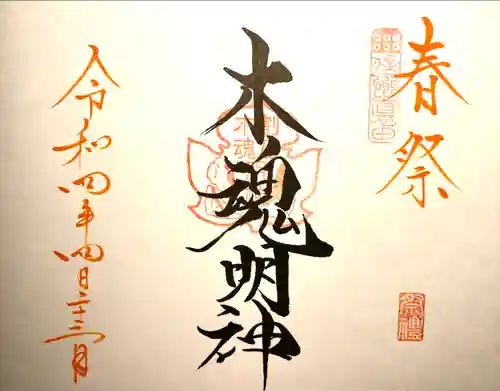 春祭
木魂明神
令和四年四月二十三日
祭禮